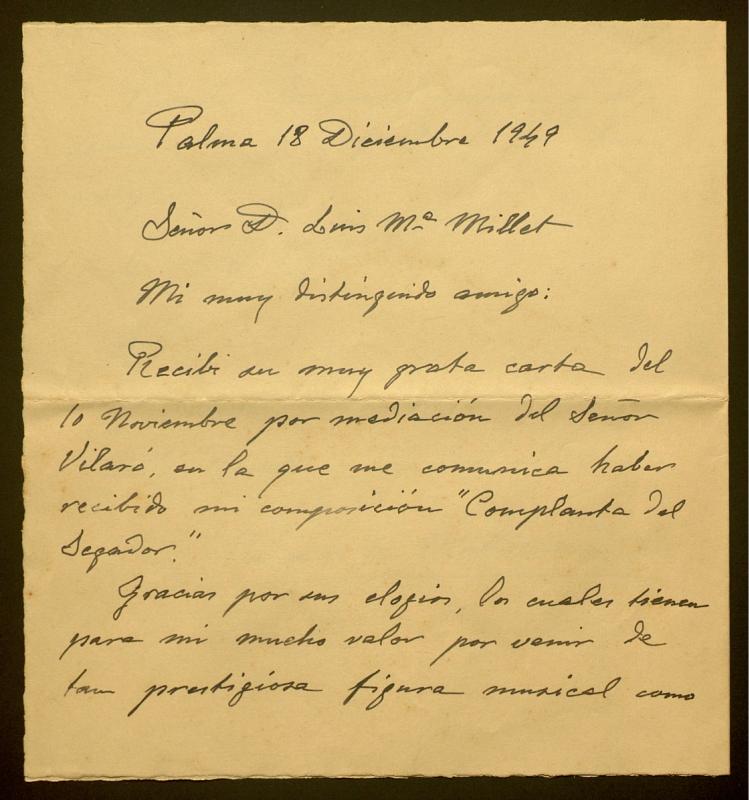 Palma 18 Diciembre 1949
Señor D. Luis Mª Millet
Mi muy distinguido amigo:
Recibi su muy grata carta del
10 Noviembre por mediación del Señor
Vilaró, en la que me comunica haber
recibido mi composición "Complanta del
Segador."
Gracias por sus elogios, los cuales tienen
para mi mucho valor por venir de
tan prestigiosa figura musical como